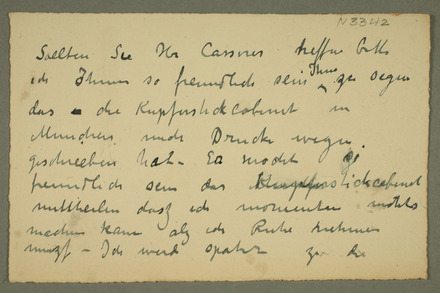 N3342
Sollten Sie Hr Cassirer treffen bitte
ich Ihnen so freundlich sein Ihm zu sagen
das die Kupferstichcabinet in
Munchen mich Drucke wegen
geschrieben hat. Es mocht
freundlich sein das Kupferstichcabinet
mittheilen dasz ich momenten nichts
machen kann als ich Ruhe nehmen
musz - Ich werd spater zu die